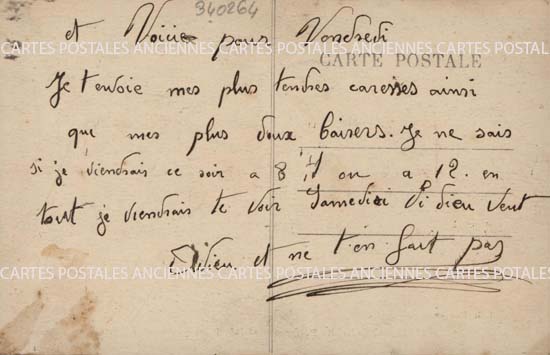 340264
et Voici pour Vendredi
CARTES POSTALES ANCIENNES CARTES POSTALES ANCIENNES CARTES POSTALES ANCIENNES
CARTE POSTALE
Je t'envoie mes plus tendres caresses ainsi
que mes plus doux baisers. Je ne sais
si je viendrais ce soir a 8 H ou a 12. en
tout je viendrais te voir Samedi Si dieu veut
Adieu et ne t'en fait pas
CARTES POSTALES ANCIENNES CARTES POSTALES ANCIENNES CARTES POSTALES ANCIENNES